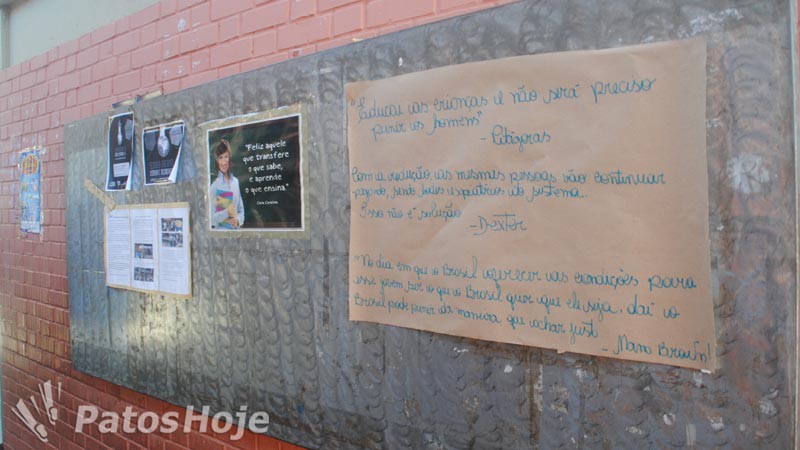 "Feliz aquele
que transfere
o que sabe,
e aprende
o que ensina."
Cora Coralina
"Educai as crianças e não será preciso
punir os homens"
- Pitágoras
Com a redução, as mesmas pessoas vão continuar
pagando, sendo bodes expiatórios do sistema..
Isso não é solução
- Dexter
"No dia em que o Brasil oferecer as condições para
esse jovem ser o que o Brasil quer que ele seja, daí o
Brasil pode punir da maneira que achar just
- Mano Brown!
PatosHoje